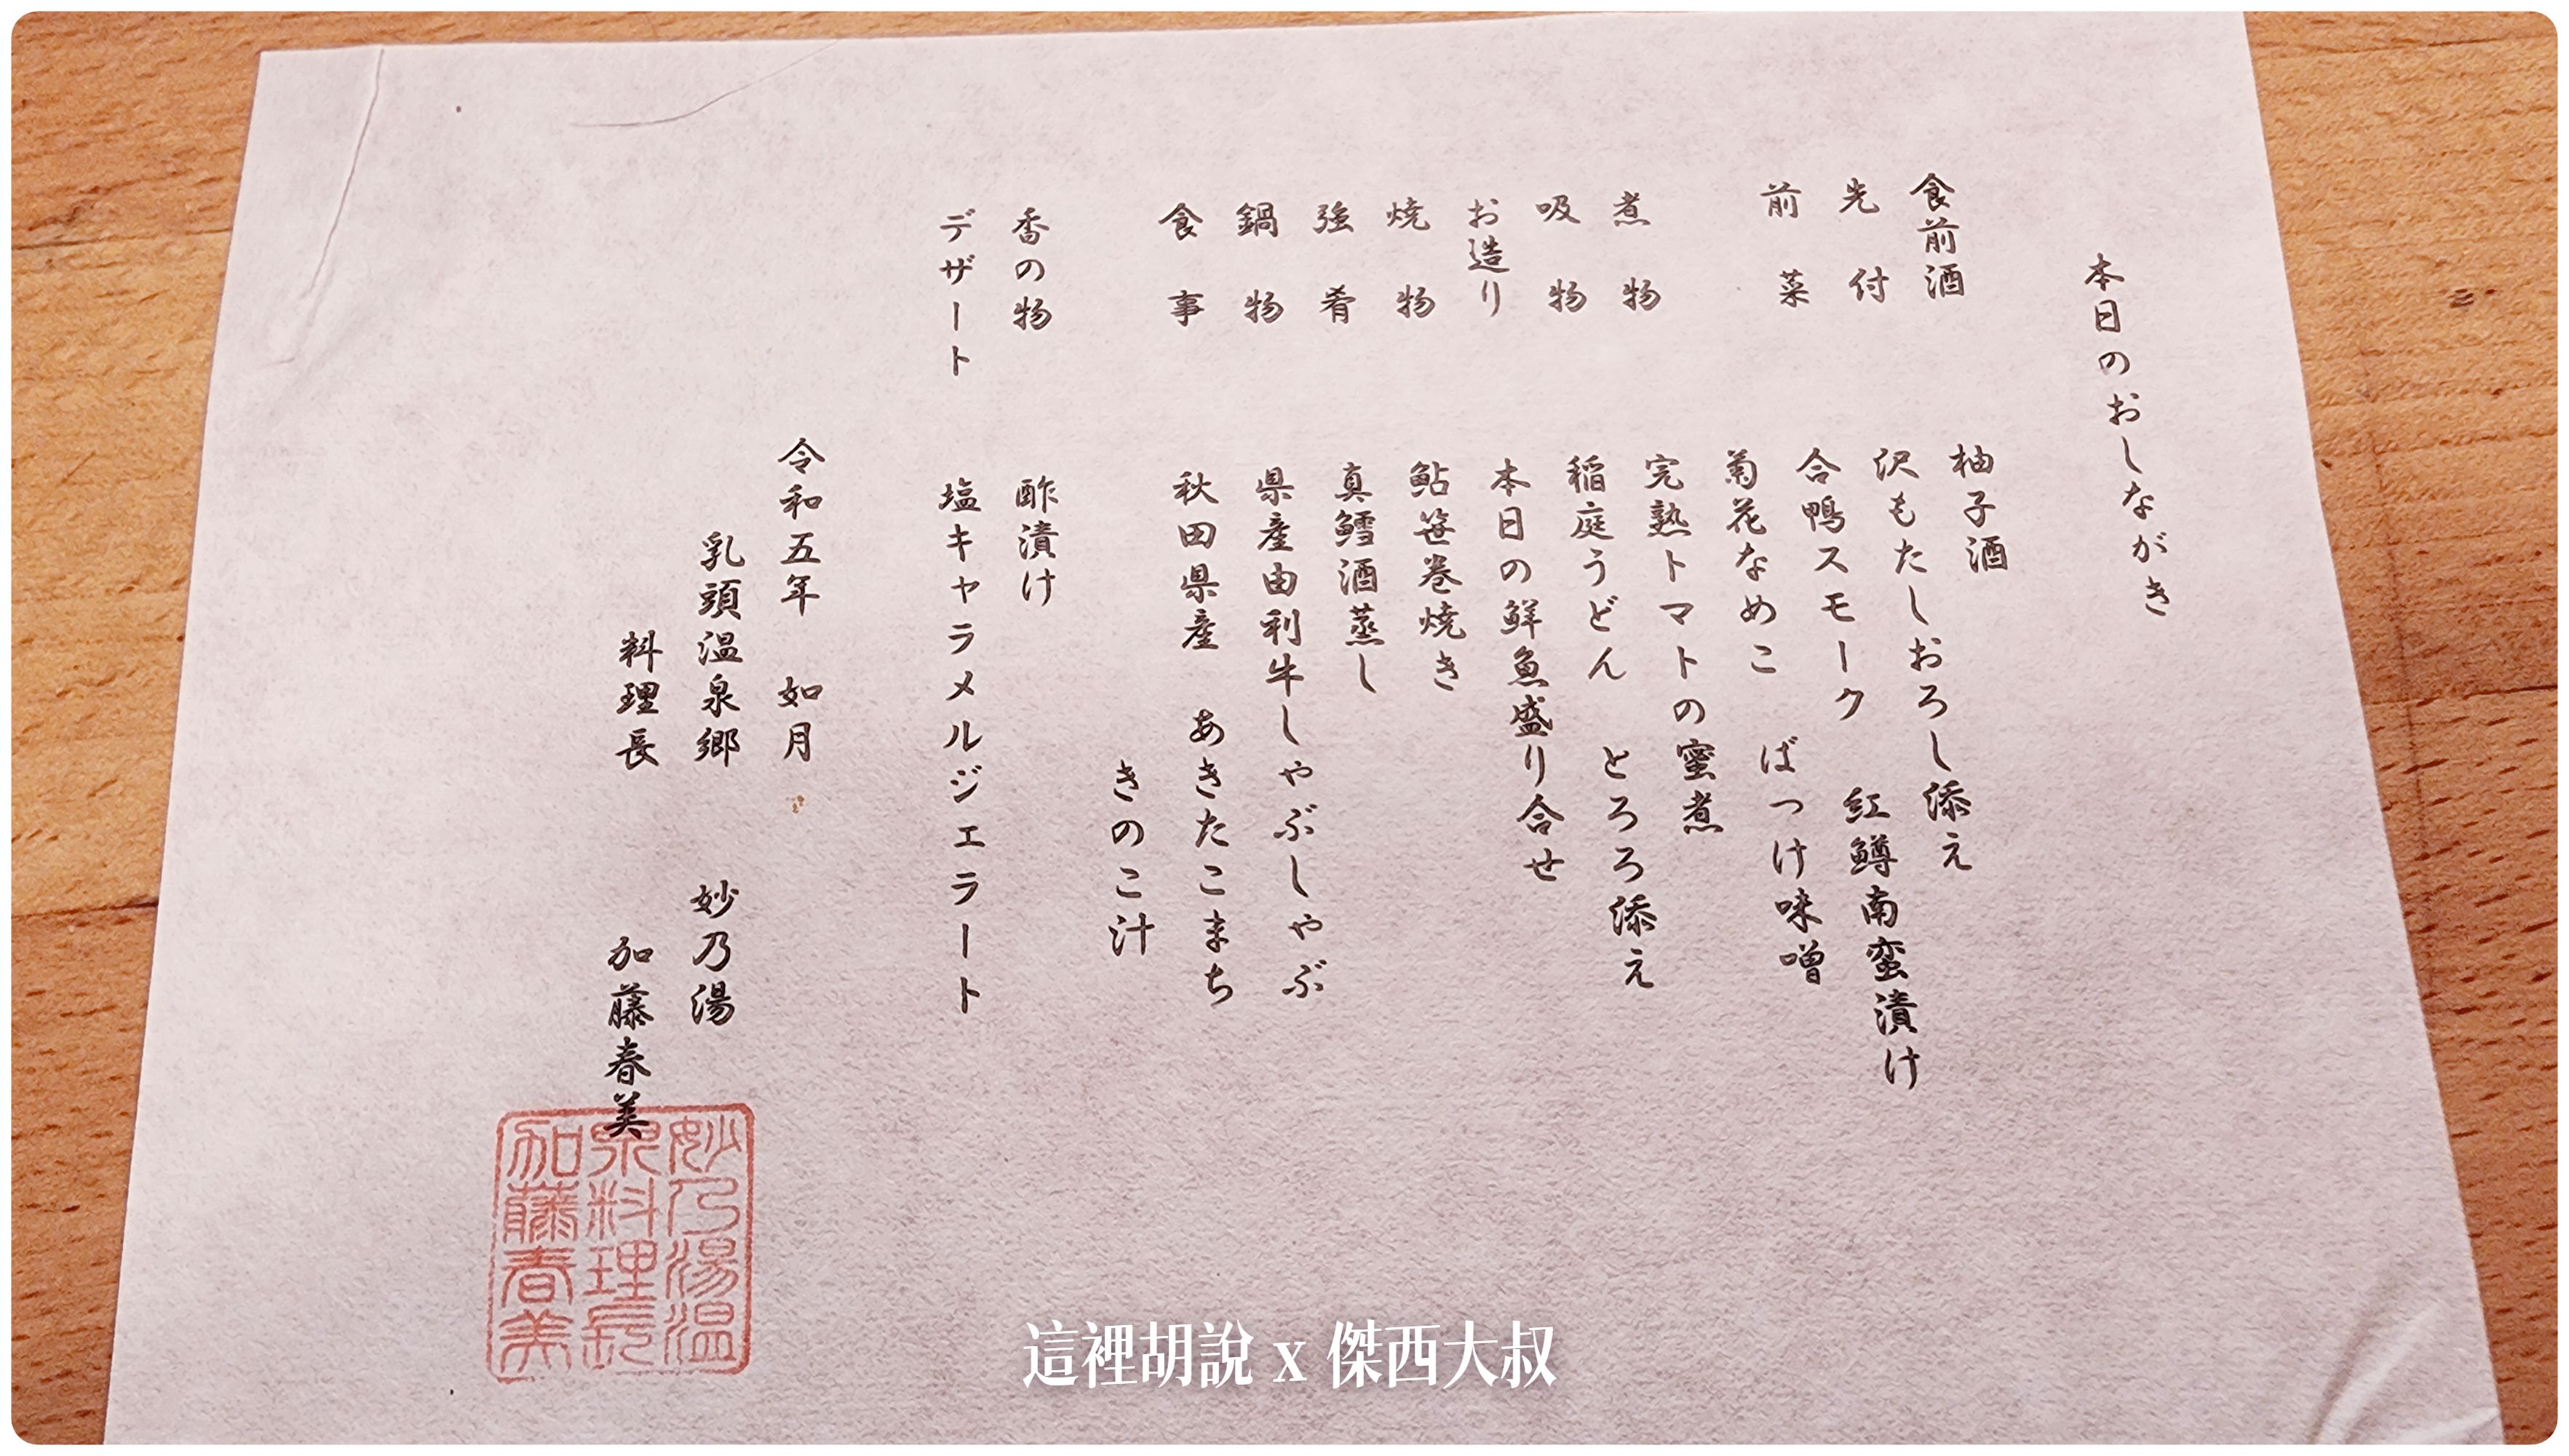 本日のおしながき
食前酒　柚子酒
先付　沢もたしおろし添え
前菜　合鴨スモーク　紅鱒南蛮漬け
菊花なめこ　ばっけ味噌
煮物　完熟トマトの蜜煮
吸物　稲庭うどん　とろろ添え
お造り　本日の鮮魚盛り合せ
焼物　鮎笹巻焼き
強肴　真鱈酒蒸し
鍋物　県産由利牛しゃぶしゃぶ
食事　秋田県産　あきたこまち
きのこ汁
香の物　酢漬け
デザート　塩キャラメルジェラート
令和五年　如月
乳頭温泉郷　妙乃湯
料理長　加藤春美
妙乃湯温
泉料理長
加藤春美
這裡胡說 x 傑西大叔